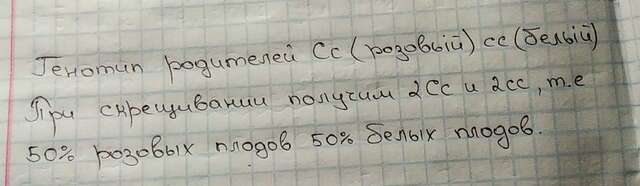 Генотип родителей Сс (розовый) сс (белый)
При скрещивании получим 2Сс и 2сс, т.е
50% розовых плодов 50% белых плодов.